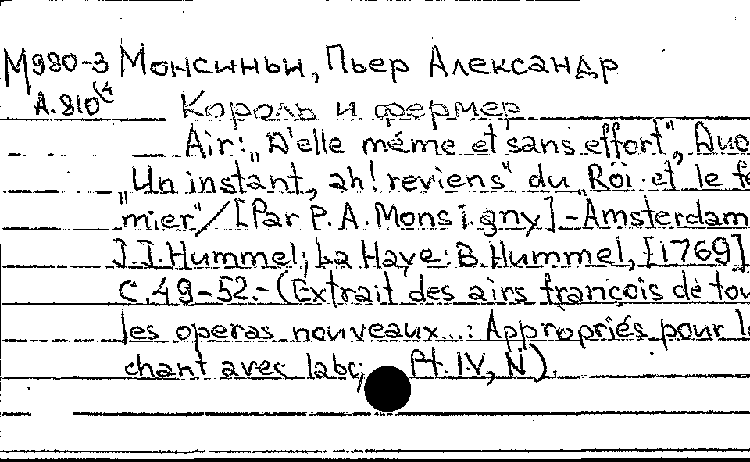 М980-3 Монсиньи, Пьер Александр
А.810(4 Король и фермер
Air: „D'elle même et sans effort", Duo
„Un instant, ah! reviens" du „Roi et le fe
mier"/[Par P.A. Monsigny]-Amsterdam
J.J.Hummel; La Haye: B.Hummel, [1769]
C.49-52.-(Extrait des airs françois de tou
les operas nouveaux...: Appropriés pour le
chant avec labc; Pt. IV, N).